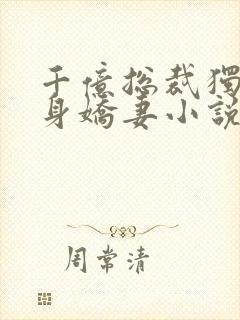 千億总裁獨
身嬌妻小説
周常清